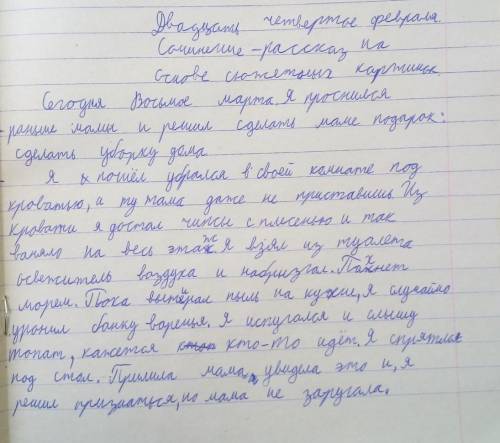 Двадцать четвертое февраля.
Сочинение-рассказ на
основе сюжетных картинок.
Сегодня Восьмое марта. Я проснился
раньше мамы и решил сделать маме подарок:
сделать уборку дома
Я пошёл убрался в своей комнате под
кроватью, и ту тама даже не приставишь. Из
кровати я достал чипсы с плесенью и так
воняло на весь этаж. Я взял из туалета
освежитель воздуха и набризгал. Пахнет
морем. Пока вытерал пыль на кухне, я случайно
уронил банку варенья. Я испугался и слышу
топат, кажется кто-то идёт. Я спрятлся
под стол. Пришла мама, увидела это и, я
решил признаться, но мама не заругала.